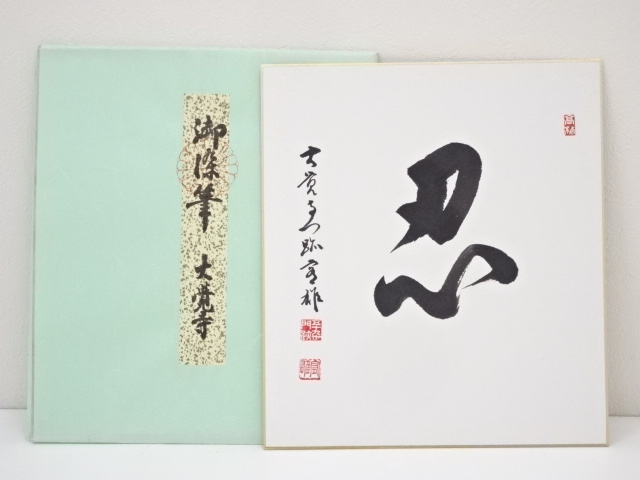 御染筆 大覚寺
忍
大覚寺門跡寛雄